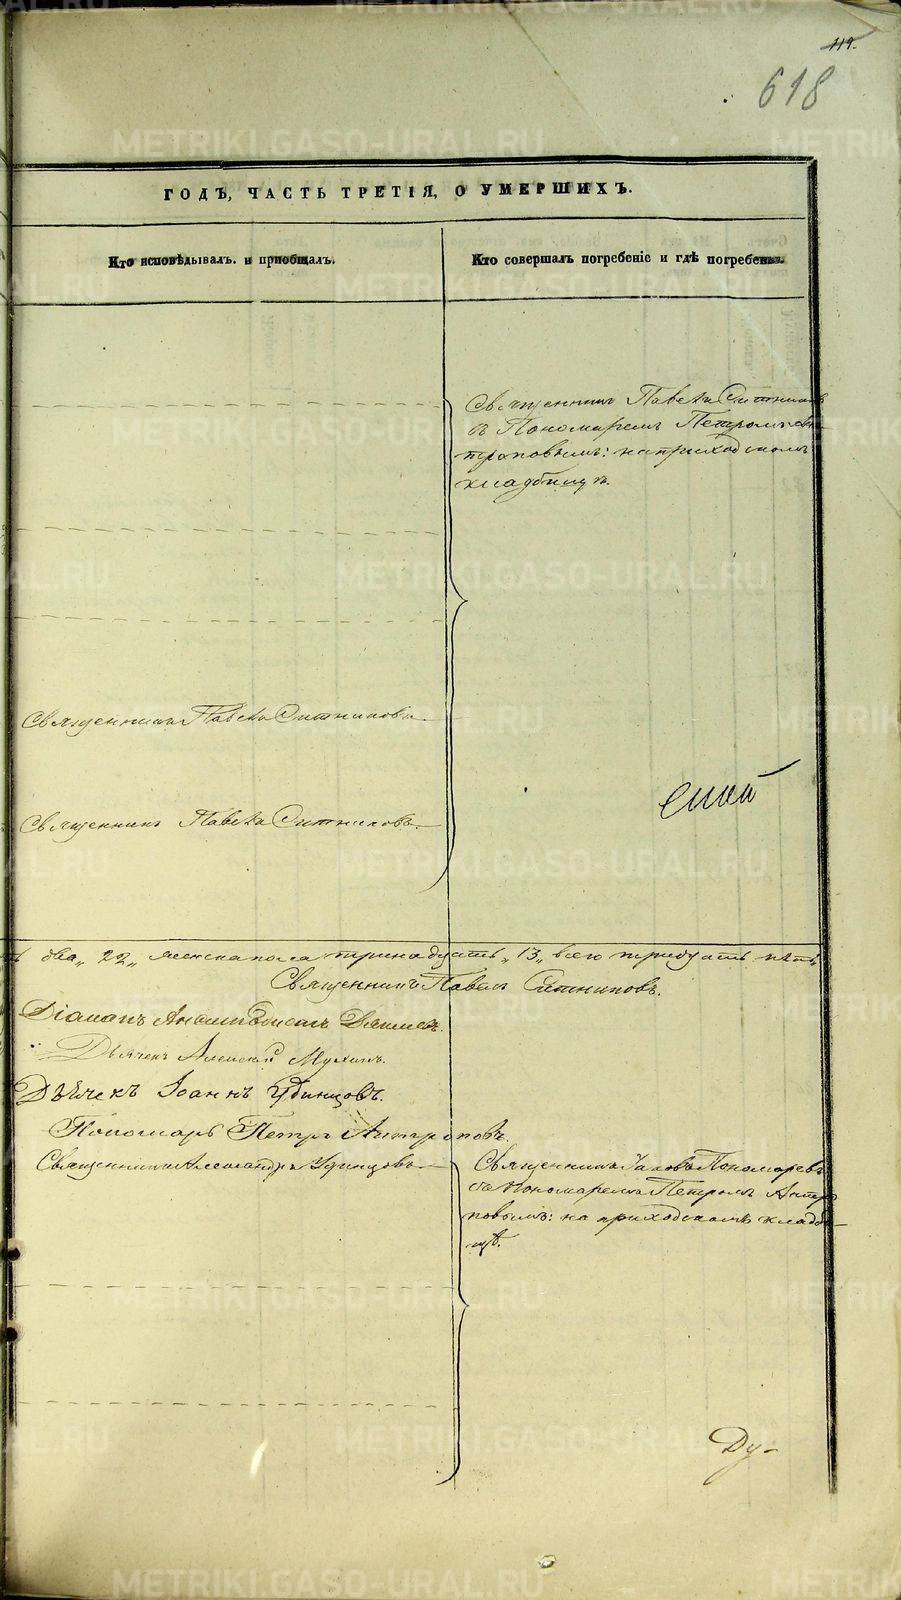 119.
618
ГОДЪ, ЧАСТЬ ТРЕТІЯ, О УМЕРШИХЪ.
Кто исповѣдывалъ и пріобщалъ.
Кто совершалъ погребеніе и гдѣ погребены.
Священникъ Павелъ Ситниковъ
съ Пономаремъ Петромъ Ан-
троповымъ: на приходскомъ
кладбищѣ.
Священникъ Павелъ Ситниковъ.
Священникъ Павелъ Ситниковъ.
два „22„ женска пола тринадцать „13„ всего тридцать пять
Священникъ Павелъ Ситниковъ.
Діаконъ
Дьячекъ Алексій Мухинъ.
Дьячекъ Іоаннъ Удинцовъ.
Пономарь Петръ Антроповъ.
Священникъ Александръ Удинцовъ
Священникъ Іаковъ Пономаревъ
съ Пономаремъ Петромъ Антро
повымъ: на приходскомъ кладби-
щѣ.
Ду-
METRIKI.GASO-URAL.RU